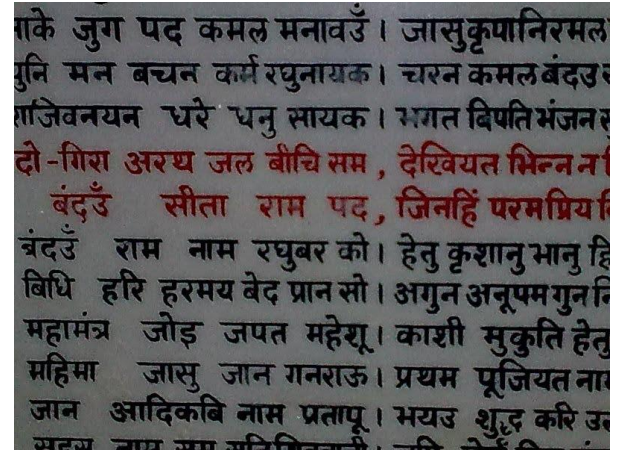 ाके जुग पद कमल मनावउँ । जासुकृपानिरमल
पुनि मन बचन कर्म रघुनायक । चरन कमल बंदउ
राजिवनयन धरे धनु सायक । भगत बिपति भंजन
दो -गिरा अरथ जल बीचि सम , देखियत भिन्न न
बंदउँ सीता राम पद , जिनहिं परमप्रिय
बंदउँ राम नाम रघुबर को । हेतु कृशानु भानु हि
बिधि हरि हरमय बेद प्रान सो । अगुन अनूपम गुन नि
महामंत्र जोइ जपत महेशू । काशी मुकुति हेतु
महिमा जासु जान गनराऊ । प्रथम पूजियत नाम
जान आदिकबि नाम प्रतापू । भयउ शुद्ध करि उ